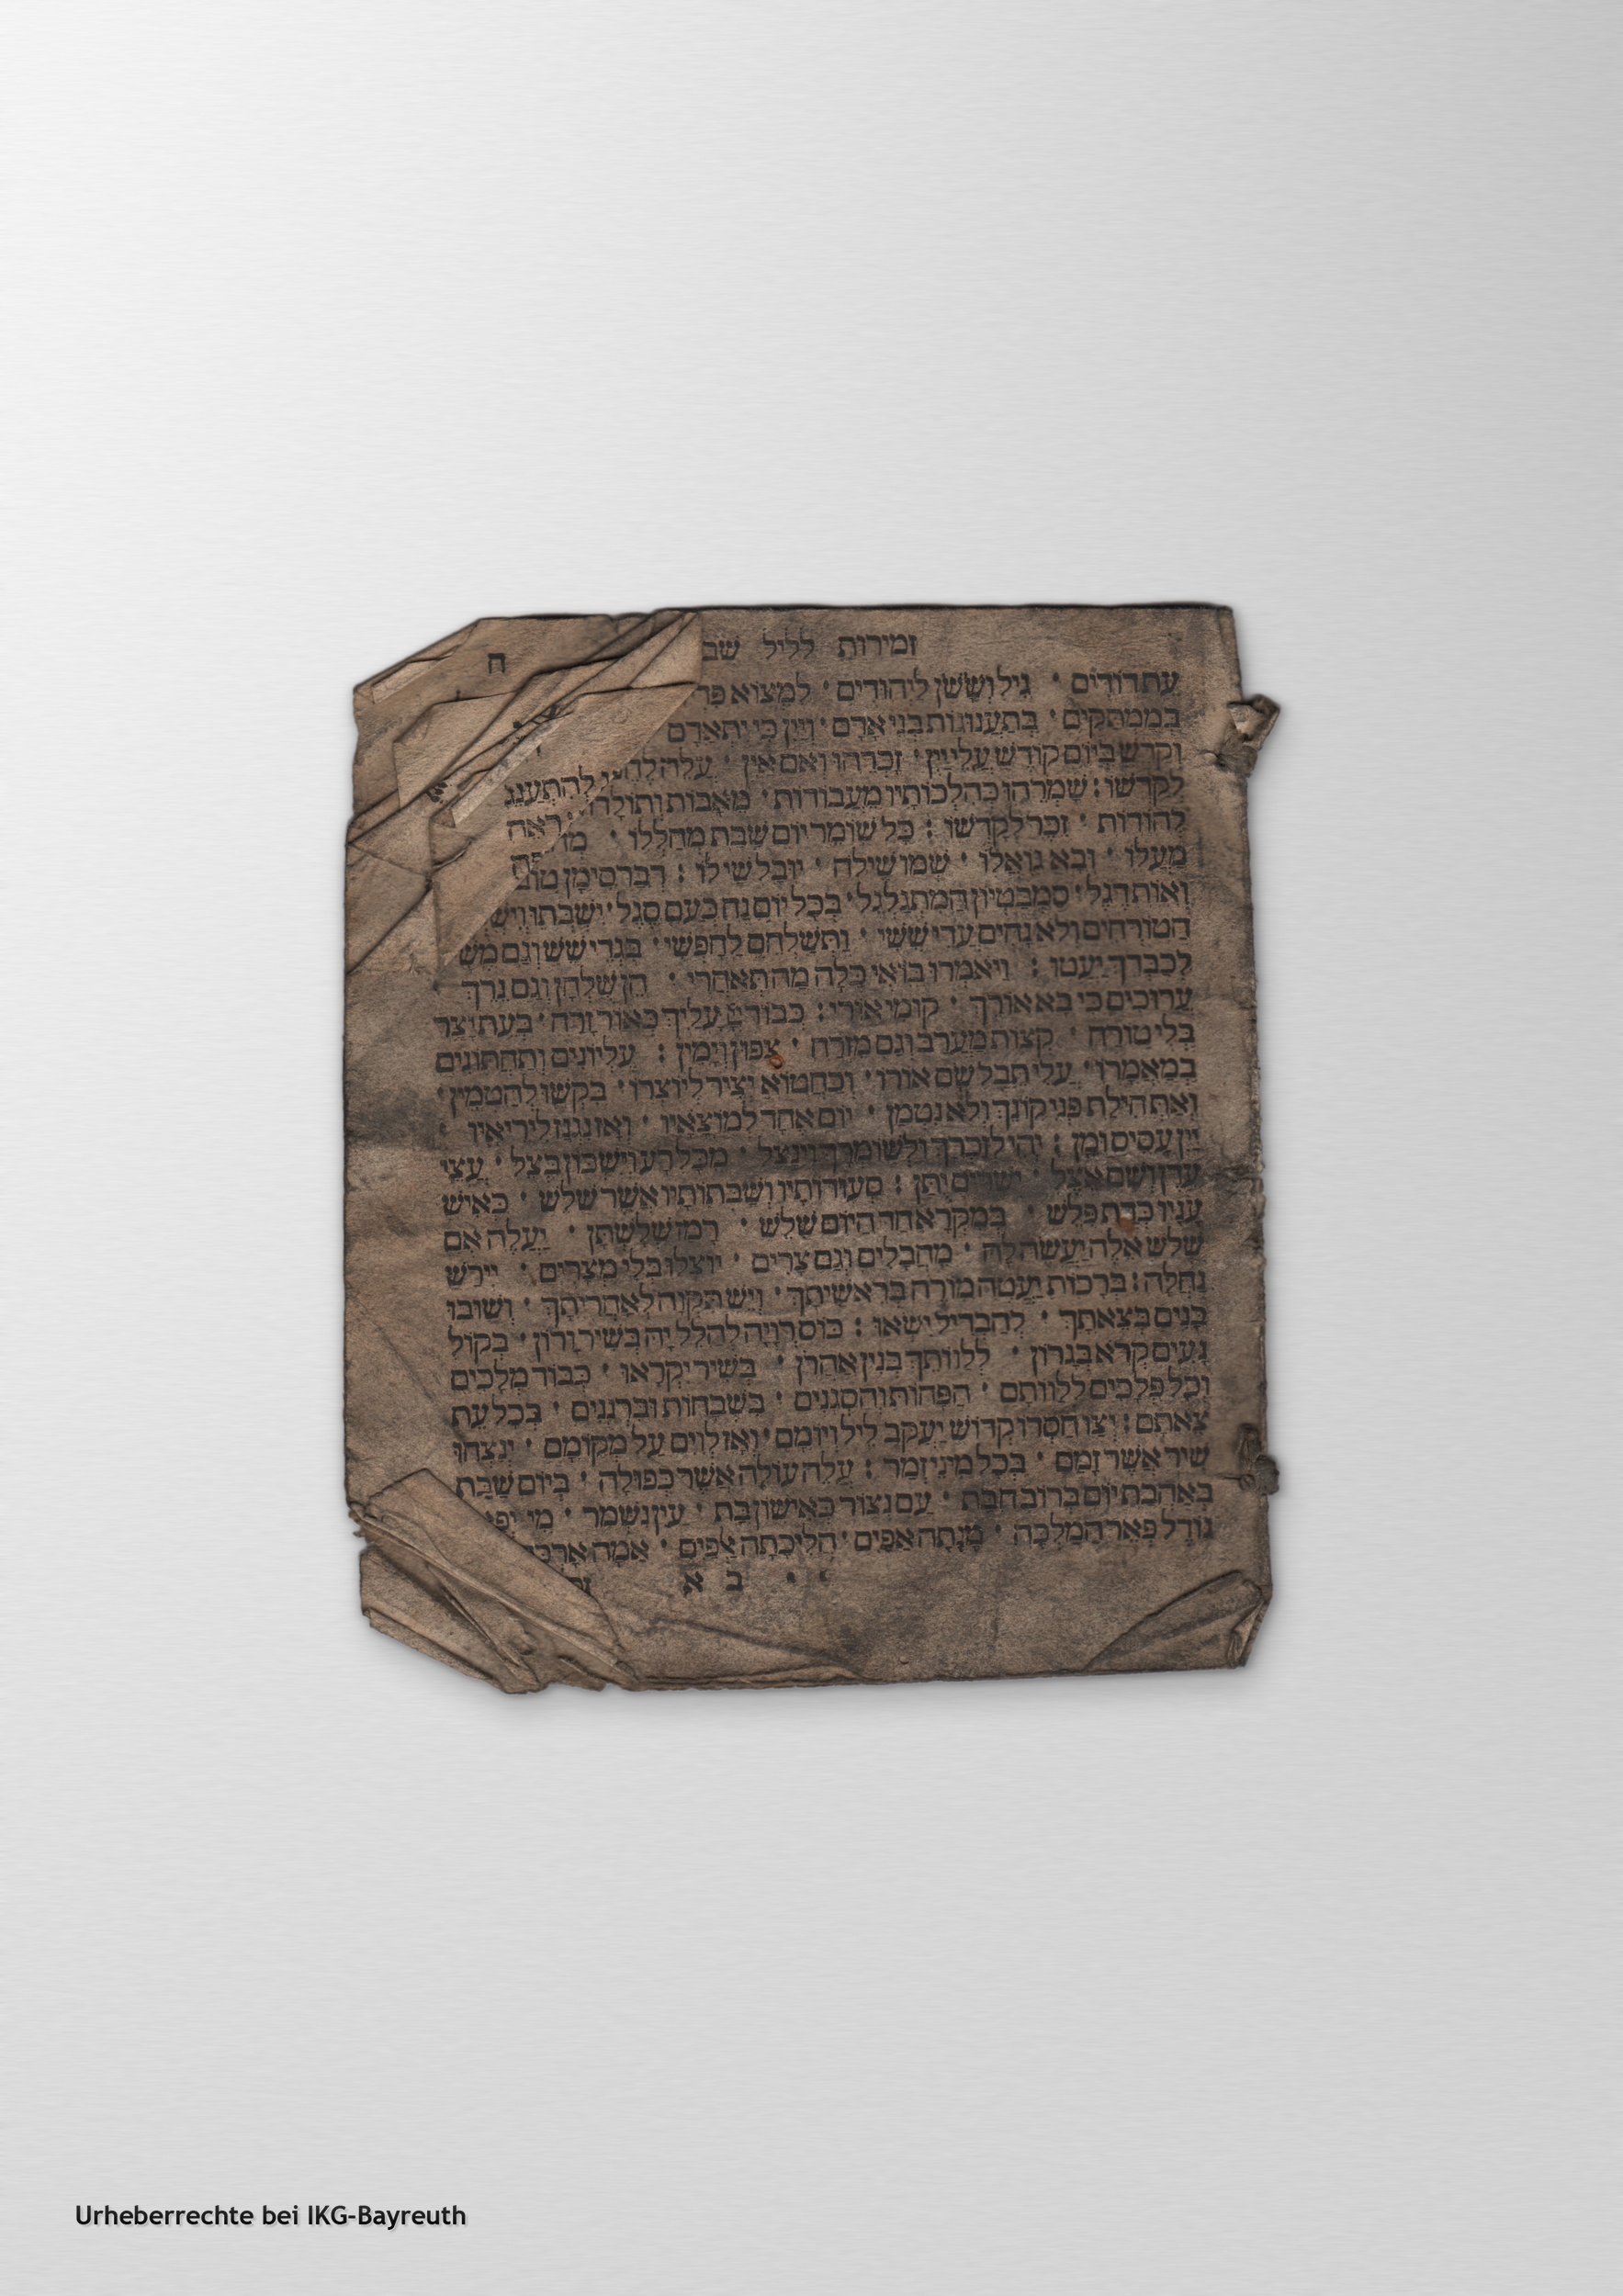 זמירות לליל שב
ח
עת דודים · גיל וששן ליהודים · למצוא פד
בממתקים · בתענוגות בני אדם · ויין כי יתאדם
וקדש ביום קודש עלי יין · זכרהו ואם אין
לקדשו : שמרהו כהלכותיו מעבודות · מאבות להתענג
להודות · זכר לקדשו : כל שומר יום שבת מהללו · ראה
מעלו · ובא גואלו · שמו שילה · יובל שי לו : דבר סימן טוב
ואות דגל · סמבטיון המתגלגל · בכל יום נח כעם סגל · ישבתו
הטורחים ולא נחים עדי ששי · ותשלחם לחפשי · בגדי שש וגם מש
לכבדך יעטו : ויאמרו בואי כלה מה תאחרי · הן שלחן וגם נרך
ערוכים כי בא אורך · קומי אורי : כבוד עליך כאור זרח · בעת יצר
בלי טורח · קצות מערב וגם מזרח · צפון וימין : עליונים ותחתונים
במאמרו · עלי תבל שם אורו · וכחטוא יציר ליוצרו · בקשו להטמין ·
ואת הילת פני קונך ולא נטמן · יום אחר למוצאיו · ואז נגנז ליריאיו
יין עסיס ומן : יהי לזכרך ולשומרך וינצל · מכל רע וישכון בצל · עצי
עדן ושם אצל ישרים יתן : סעודותיו ושבתותיו אשר שלש · כאיש
עניו כדת פלש · במקרא חד היום שלש · רמז שלשתן · יעלה אם
שלש אלה יעשה לה · מחבלים וגם צרים · יוצלו בלי מצרים · יירש
נחלה : ברכות יעטה מורה בראשיתך · ויש תקוה לאחריתך · ושובו
בנים בצאתך · להבדיל ישאו : כוס רויה להלל יה בשיר ורון · בקול
נעים קרא בגרון · ללוותך בנין אהרן · בשיר יקראו · כבוד מלכים
וכל פלכים ללוותם · הפחות והסגנים · בשבחות וברננים · בכל עת
צאתם : יצו חסדו קדוש יעקב ליל ויומם · ואז לוים על מקומם · ינצחו
שיר אשר זמם · בכל מיני זמר : עלה עולה אשר כפולה · ביום שבת
באהבת יום ברוב חבת · עם נצור כאישון בת · עין נשמר · מי
גודל פאר המלכה · מנתה אפים · הליכתה צפים · אמה
ב א